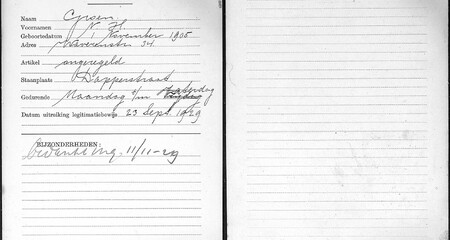 Naam Groen
Voornamen N. H.
Geboortedatum 1 November 1905
Adres 34
Artikel ongeregeld
Staanplaats Dapperstraat
Gedurende Maandag t/m Zaterdag
Datum uitreiking legitimatiebewijs 23 Sept. 1929
BIJZONDERHEDEN:
11/11-29